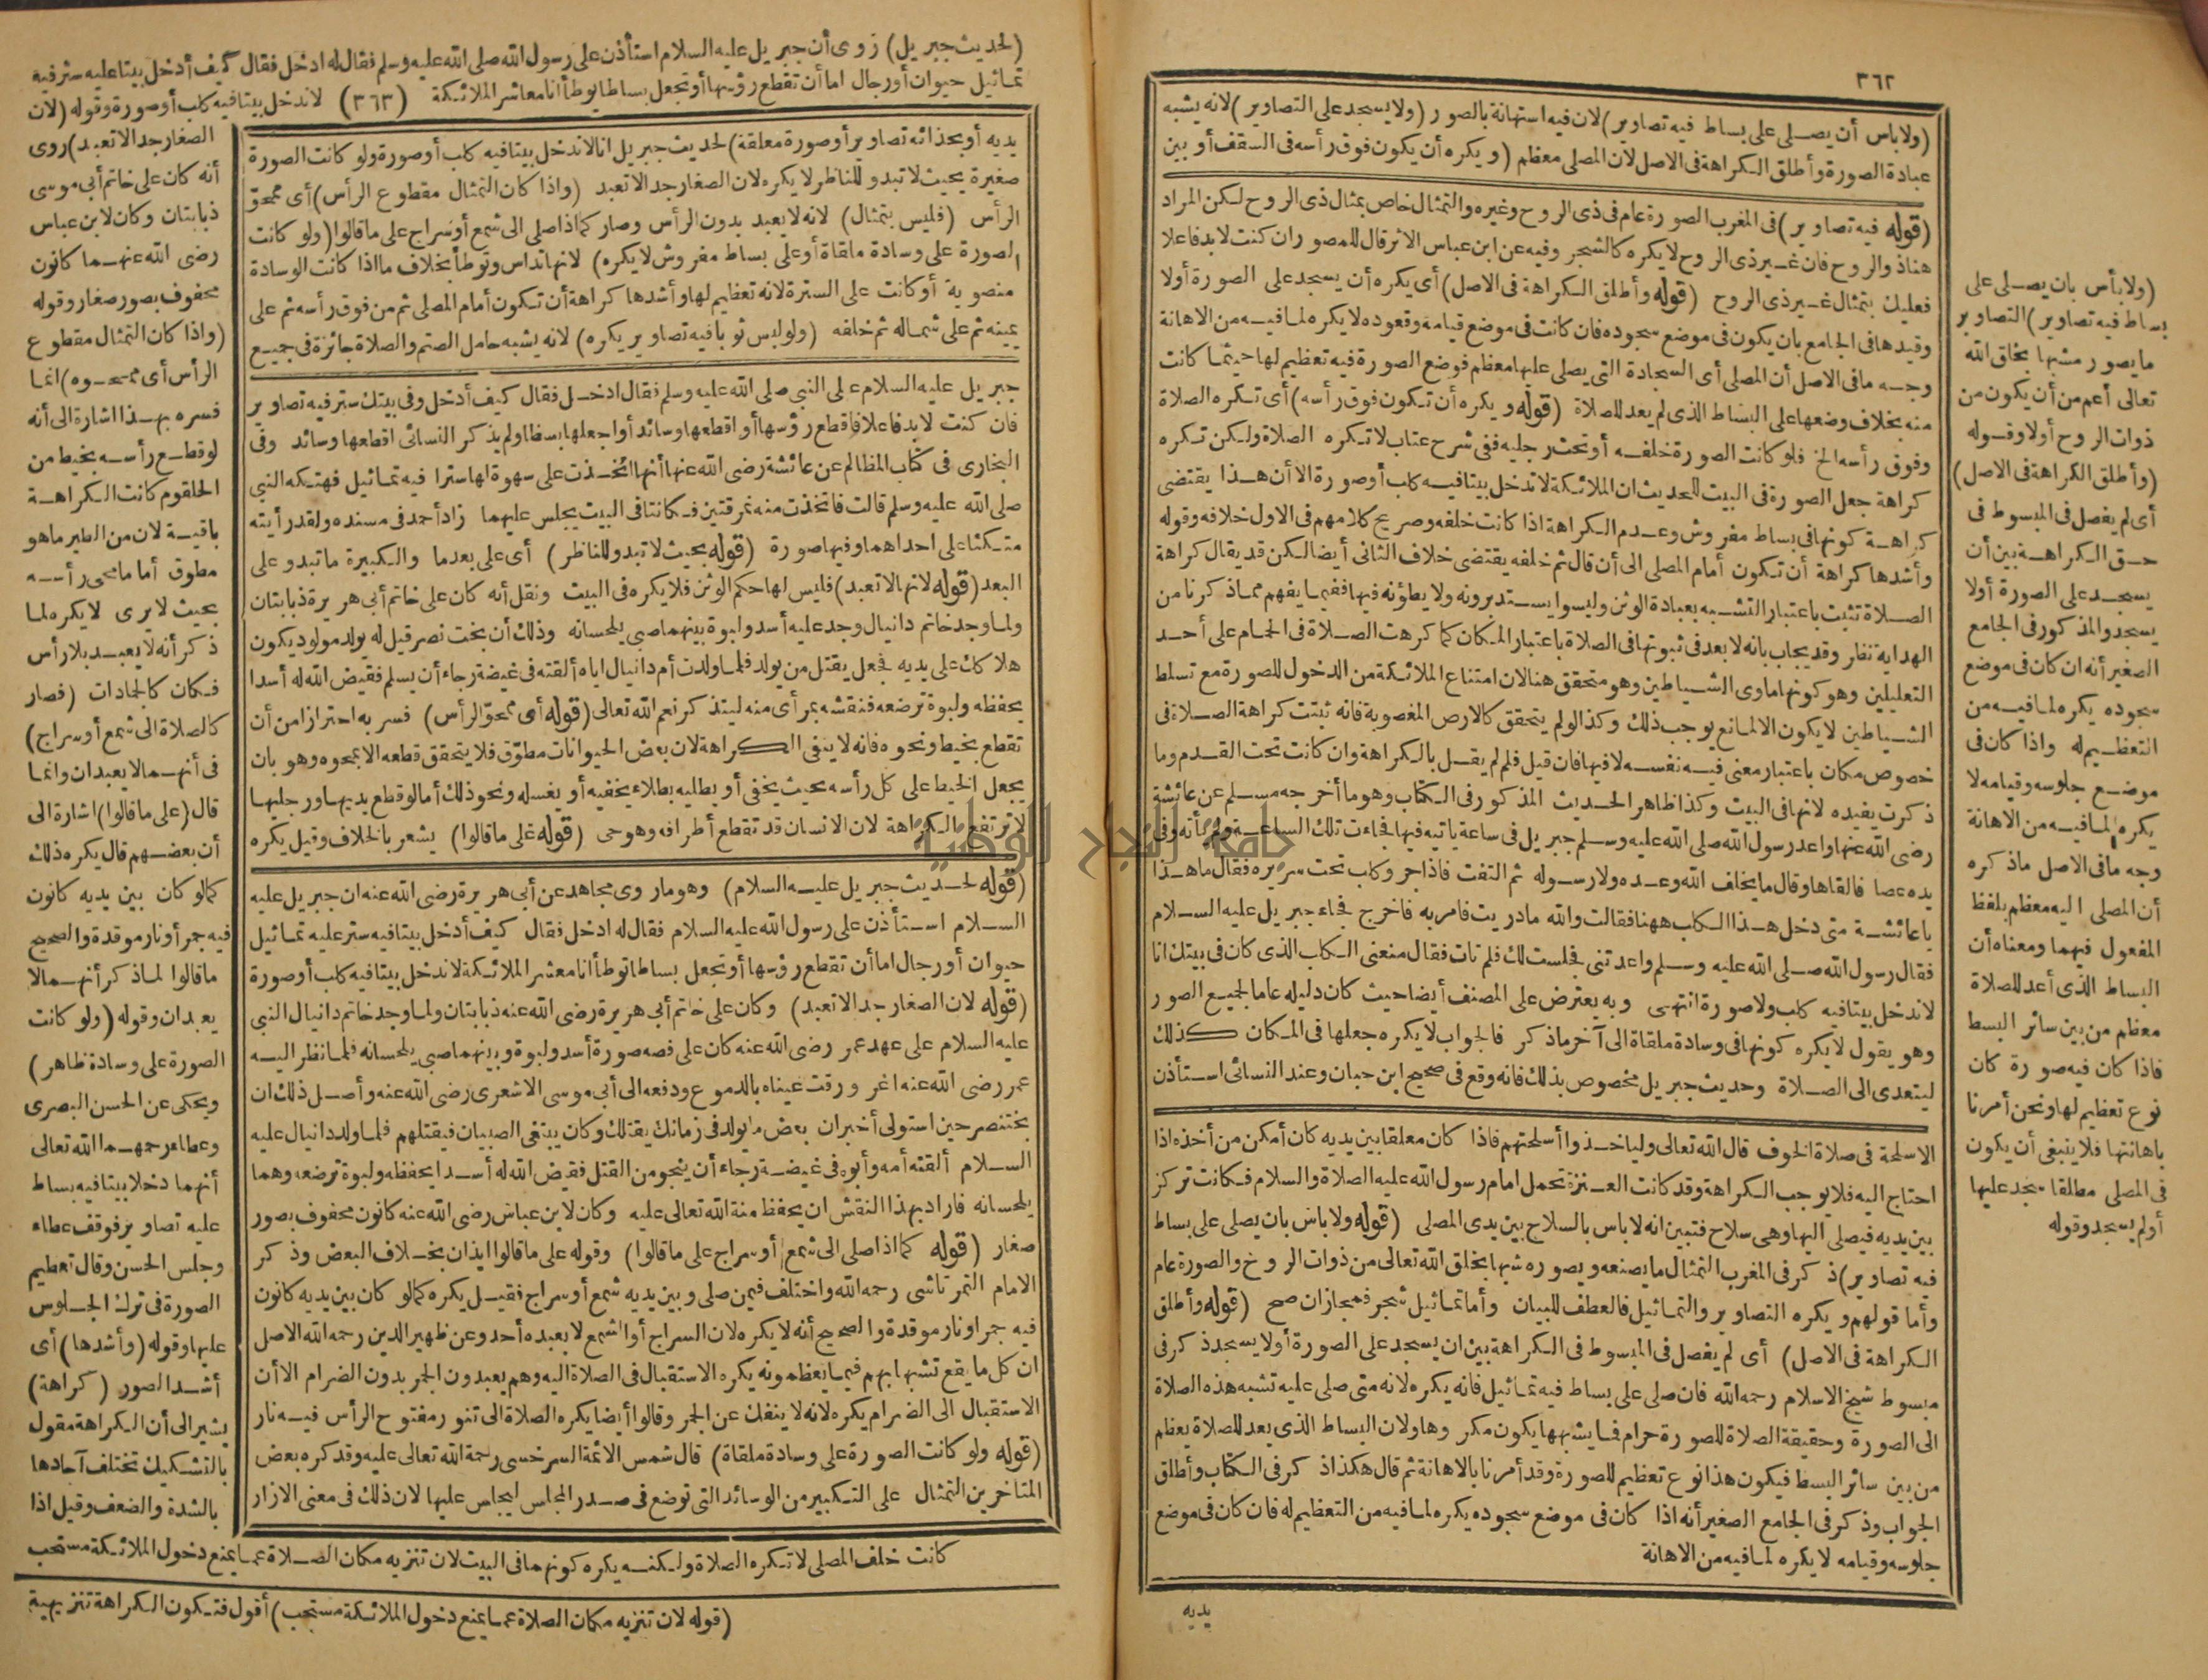 ٣٦٢
(ولا باس أن يصلى على بساط فيه تصاوير) لان فيه استهانة بالصور (ولا يسجد على التصاوير) لانه يشبه
عبادة الصورة وأطلق الكراهة فى الاصل لان المصلى معظم (ويكره أن يكون فوق رأسه فى السقف أو بين
(قوله فيه تصاوير) فى المغرب الصورة عام فى ذى الروح وغيره والتمثال خاص بمثال ذى الروح لكن المراد
هنا ذو الروح فان غير ذى الروح لا يكره كالشجر وفيه عن ابن عباس الاثر قال للمصور ان كنت لا بد فاعلا
فعليك بتمثال غير ذى الروح (قوله وأطلق الكراهة فى الاصل) أى يكره أن يسجد على الصورة أولا
وقيدها فى الجامع بان يكون فى موضع سجوده فان كانت فى موضع قيامه وقعوده لا يكره لما فيه من الاهانة
وجه ما فى الاصل أن المصلى أى السجادة التى يصلى عليها معظم فوضع الصورة فيه تعظيم لها حيثما كانت
منه بخلاف وضعها على البساط الذى لم يعد للصلاة (قوله ويكره أن تكون فوق رأسه) أى تكره الصلاة
وفوق رأسه الخ فلو كانت الصورة خلفه أو تحت رجليه ففى شرح عتاب لا تكره الصلاة ولكن تكره
كراهة جعل الصورة فى البيت للحديث ان الملائكة لا تدخل بيتا فيه كلب أو صورة الا أن هذا يقتضى
كراهة كونها فى بساط مفروش وعدم الكراهة اذا كانت خلفه وصريح كلامهم فى الاول خلافه وقوله
وأشدها كراهة أن تكون أمام المصلى الى أن قال ثم خلفه يقتضى خلاف الثانى أيضا لكن قد يقال كراهة
الصلاة تثبت باعتبار التشبه بعبادة الوثن وليسوا يستدبرونه ولا يطئونه فيها ففيما يفهم مما ذكرنا من
الهداية نظر وقد يجاب بانه لا بعد فى ثبوتها فى الصلاة باعتبار المكان كما كرهت الصلاة فى الحمام على أحد
التعليلين وهو كونها ماوى الشياطين وهو متحقق هنا لان امتناع الملائكة من الدخول للصورة مع تسلط
الشياطين لا يكون الا لمانع يوجب ذلك وكذا لو لم يتحقق كالارض المغصوبة فانه ثبتت كراهة الصلاة فى
خصوص مكان باعتبار معنى فيه نفسه لا فيها فان قيل فلم لم يقل بالكراهة وان كانت تحت القدم وما
ذكرت يفيده لانها فى البيت وكذا ظاهر الحديث المذكور فى الكتاب وهو ما أخرجه مسلم عن عائشة
رضى الله عنها واعد رسول الله صلى الله عليه وسلم جبريل فى ساعة ياتيه فيها فجاءت تلك الساعة ولم يأته وفى
يده عصا فالقاها وقال ما يخلف الله وعده ولا رسوله ثم التفت فاذا جرو كلب تحت سريره فقال ما هذا
يا عائشة متى دخل هذا الكلب ههنا فقالت والله ما دريت فامر به فاخرج فجاء جبريل عليه السلام
فقال رسول الله صلى الله عليه وسلم واعدتنى فجلست لك فلم تات فقال منعنى الكلب الذى كان فى بيتك انا
لا ندخل بيتا فيه كلب ولا صورة انتهى وبه يعترض على المصنف أيضا حيث كان دليله عاما لجميع الصور
وهو يقول لا يكره كونها فى وسادة ملقاة الى آخر ما ذكر فالجواب لا يكره جعلها فى المكان كذلك
ليتعدى الى الصلاة وحديث جبريل مخصوص بذلك فانه وقع فى صحيح ابن حبان وعند النسائى استأذن
الاسلحة فى صلاة الخوف قال الله تعالى وليأخذوا أسلحتهم فاذا كان معلقا بين يديه كان أمكن من أخذه اذا
احتاج اليه فلا يوجب الكراهة وقد كانت العنزة تحمل امام رسول الله عليه الصلاة والسلام فكانت تركز
بين يديه فيصلى اليها وهى سلاح فتبين انه لا باس بالسلاح بين يدى المصلى (قوله ولا باس بان يصلى على بساط
فيه تصاوير) ذكر فى المغرب التمثال ما يصنعه ويصوره شبها بخلق الله تعالى من ذوات الروح والصورة عام
وأما قولهم ويكره التصاوير والتماثيل فالعطف للبيان وأما تماثيل شجر فمجاز ان صح (قوله وأطلق
الكراهة فى الاصل) أى لم يفصل فى المبسوط فى الكراهة بين ان يسجد على الصورة أو لا يسجد ذكر فى
مبسوط شيخ الاسلام رحمه الله فان صلى على بساط فيه تماثيل فانه يكره لانه متى صلى عليه تشبه هذه الصلاة
الى الصورة وحقيقة الصلاة للصورة حرام فما يشبهها يكون مكروها ولان البساط الذى يعد للصلاة يعظم
من بين سائر البسط فيكون هذا نوع تعظيم للصورة وقد أمرنا بالاهانة ثم قال هكذا ذكر فى الكتاب وأطلق
الجواب وذكر فى الجامع الصغير أنه اذا كان فى موضع سجوده يكره لما فيه من التعظيم له فان كان فى موضع
جلوسه وقيامه لا يكره لما فيه من الاهانة
يديه
(ولا بأس بان يصلى على
بساط فيه تصاوير) التصاوير
ما يصور مشبها بخلق الله
تعالى أعم من أن يكون من
ذوات الروح أولا وقوله
(وأطلق الكراهة فى الاصل)
أى لم يفصل فى المبسوط فى
حق الكراهة بين أن
يسجد على الصورة أولا
يسجد والمذكور فى الجامع
الصغير أنه ان كان فى موضع
سجوده يكره لما فيه من
التعظيم له واذا كان فى
موضع جلوسه وقيامه لا
يكره لما فيه من الاهانة
وجه ما فى الاصل ما ذكره
أن المصلى اليه معظم بلفظ
المفعول فيهما ومعناه أن
البساط الذى أعد للصلاة
معظم من بين سائر البسط
فاذا كان فيه صورة كان
نوع تعظيم لها ونحن أمرنا
باهانتها فلا ينبغى أن يكون
فى المصلى مطلقا سجد عليها
أو لم يسجد وقوله
(لحديث جبريل) روى أن جبريل عليه السلام استأذن على رسول الله صلى الله عليه وسلم فقال له ادخل فقال كيف أدخل بيتا عليه ستر فيه
تماثيل حيوان أو رجال اما أن تقطع رؤسها أو تجعل بساطا يوطأ انا معاشر الملائكة (٣٦٣) لا ندخل بيتا فيه كلب أو صورة وقوله (لان
يديه أو بحذائه تصاوير أو صورة معلقة) لحديث جبريل انا لا ندخل بيتا فيه كلب أو صورة ولو كانت الصورة
صغيرة بحيث لا تبدو للناظر لا يكره لان الصغار جدا لا تعبد (واذا كان التمثال مقطوع الرأس) أى ممحو
الرأس (فليس بتمثال) لانه لا يعبد بدون الرأس وصار كما اذا صلى الى شمع أو سراج على ما قالوا (ولو كانت
الصورة على وسادة ملقاة أو على بساط مفروش لا يكره) لانها تداس وتوطأ بخلاف ما اذا كانت الوسادة
منصوبة أو كانت على السترة لانه تعظيم لها وأشدها كراهة أن تكون أمام المصلى ثم من فوق رأسه ثم على
يمينه ثم على شماله ثم خلفه (ولو لبس ثوبا فيه تصاوير يكره) لانه يشبه حامل الصنم والصلاة جائزة فى جميع
جبريل عليه السلام على النبى صلى الله عليه وسلم فقال ادخل فقال كيف أدخل وفى بيتك ستر فيه تصاوير
فان كنت لا بد فاعلا فاقطع رؤسها أو اقطعها وسائد أو اجعلها بسطا ولم يذكر النسائى اقطعها وسائد وفى
البخارى فى كتاب المظالم عن عائشة رضى الله عنها أنها اتخذت على سهوة لها سترا فيه تماثيل فهتكه النبى
صلى الله عليه وسلم قالت فاتخذت منه نمرقتين فكانتا فى البيت يجلس عليهما زاد أحمد فى مسنده ولقد رأيته
متكئا على احداهما وفيها صورة (قوله بحيث لا تبدو للناظر) أى على بعد ما والكبيرة ما تبدو على
البعد (قوله لانها لا تعبد) فليس لها حكم الوثن فلا يكره فى البيت ونقل أنه كان على خاتم أبى هريرة ذبابتان
ولما وجد خاتم دانيال وجد عليه أسد ولبوة بينهما صبى يلحسانه وذلك أن بخت نصر قيل له يولد مولود يكون
هلاكك على يديه فجعل يقتل من يولد فلما ولدت أم دانيال اياه ألقته فى غيضة رجاء أن يسلم فقيض الله له أسدا
يحفظه ولبوة ترضعه فنقشه بمرأى منه ليتذكر نعم الله تعالى (قوله أى ممحو الرأس) فسر به احترازا من أن
تقطع بخيط ونحوه فانه لا ينفى الكراهة لان بعض الحيوانات مطوق فلا يتحقق قطعه الا بمحوه وهو بان
يجعل الخيط على كل رأسه بحيث يخفى أو يطليه بطلاء يخفيه أو يغسله ونحو ذلك أما لو قطع يديها ورجليها
لا ترتفع الكراهة لان الانسان قد تقطع أطرافه وهو حى (قوله على ما قالوا) يشعر بالخلاف وقيل يكره
(قوله لحديث جبريل عليه السلام) وهو ما روى مجاهد عن أبى هريرة رضى الله عنه ان جبريل عليه
السلام استأذن على رسول الله عليه السلام فقال له ادخل فقال كيف أدخل بيتا فيه ستر عليه تماثيل
حيوان أو رجال اما أن تقطع رؤسها أو تجعل بساطا توطأ انا معشر الملائكة لا ندخل بيتا فيه كلب أو صورة
(قوله لان الصغار جدا لا تعبد) وكان على خاتم أبى هريرة رضى الله عنه ذبابتان ولما وجد خاتم دانيال النبى
عليه السلام على عهد عمر رضى الله عنه كان على فصه صورة أسد ولبوة وبينهما صبى يلحسانه فلما نظر اليه
عمر رضى الله عنه اغرورقت عيناه بالدموع ودفعه الى أبى موسى الاشعرى رضى الله عنه وأصل ذلك ان
بختنصر حين استولى أخبر ان بعض ما يولد فى زمانك يقتلك وكان يبتغى الصبيان فيقتلهم فلما ولد دانيال عليه
السلام ألقته أمه وأبوه فى غيضة رجاء أن ينجو من القتل فقيض الله له أسدا يحفظه ولبوة ترضعه وهما
يلحسانه فاراد بهذا النقش ان يحفظ منة الله تعالى عليه وكان لابن عباس رضى الله عنه كانون محفوف بصور
صغار (قوله كما اذا صلى الى شمع أو سراج على ما قالوا) وقوله على ما قالوا ايذان بخلاف البعض وذكر
الامام التمرتاشى رحمه الله واختلف فيمن صلى وبين يديه شمع أو سراج فقيل يكره كما لو كان بين يديه كانون
فيه جمر أو نار موقدة والصحيح أنه لا يكره لان السراج أو الشمع لا يعبده أحد وعن ظهير الدين رحمه الله الاصل
ان كل ما يقع تشبها بهم فيما يعظمونه يكره الاستقبال فى الصلاة اليه وهم يعبدون الجمر بدون الضرام الا أن
الاستقبال الى الضرام يكره لانه لا ينفك عن الجمر وقالوا أيضا يكره الصلاة الى تنور مفتوح الرأس فيه نار
(قوله ولو كانت الصورة على وسادة ملقاة) قال شمس الائمة السرخسى رحمة الله تعالى عليه وقد كره بعض
المتاخرين التمثال على التكبير من الوسائد التى توضع فى صدر المجلس ليجلس عليها لان ذلك فى معنى الازار
الصغار جدا لا تعبد) روى
أنه كان على خاتم أبى موسى
ذبابتان وكان لابن عباس
رضى الله عنهما كانون
محفوف بصور صغار وقوله
(واذا كان التمثال مقطوع
الرأس أى ممحوه) انما
فسره بهذا اشارة الى أنه
لو قطع رأسه بخيط من
الحلقوم كانت الكراهة
باقية لان من الطير ما هو
مطوق أما ما محى رأسه
بحيث لا يرى لا يكره لما
ذكر أنه لا يعبد بلا رأس
فكان كالجمادات (فصار
كالصلاة الى شمع أو سراج)
فى أنهما لا يعبدان وانما
قال (على ما قالوا) اشارة الى
أن بعضهم قال يكره ذلك
كما لو كان بين يديه كانون
فيه جمر أو نار موقدة والصحيح
ما قالوا لما ذكر أنهما لا
يعبدان وقوله (ولو كانت
الصورة على وسادة ظاهر)
ويحكى عن الحسن البصرى
وعطاء رحمهما الله تعالى
أنهما دخلا بيتا فيه بساط
عليه تصاوير فوقف عطاء
وجلس الحسن وقال تعظيم
الصورة فى ترك الجلوس
عليها وقوله (وأشدها) أى
أشد الصور (كراهة)
يشير الى أن الكراهة مقول
بالتشكيك تختلف آحادها
بالشدة والضعف وقيل اذا
كانت خلف المصلى لا تكره الصلاة ولكنه يكره كونهما فى البيت لان تنزيه مكان الصلاة عما يمنع دخول الملائكة مستحب
(قوله لان تنزيه مكان الصلاة عما يمنع دخول الملائكة مستحب) أقول فتكون الكراهة تنزيهية
جامعة النجاح الوطنية